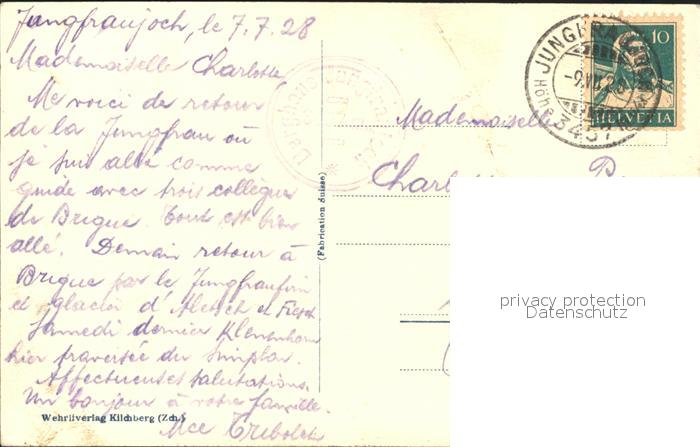 Jungfraujoch, le 7.7.28
Mademoiselle Charlotte,
Me voici de retour
de la Jungfrau où
je suis allé comme
guide avec trois collègues
de Brigue. Tout est bien
allé. Demain retour à
Brigue par le Jungfraufirn
et glacier d'Aletsch et Fiesch
Samedi dernier
hier traversée du Simplon.
Affectueuses salutations.
Un bonjour à votre famille.
Wehrliverlag Kilchberg (Zch.)
(Fabrication Suisse)
JUNGFRAUJOCH
Höhe 3457
10
HELVETIA
Mademoiselle
privacy protection
Datenschutz